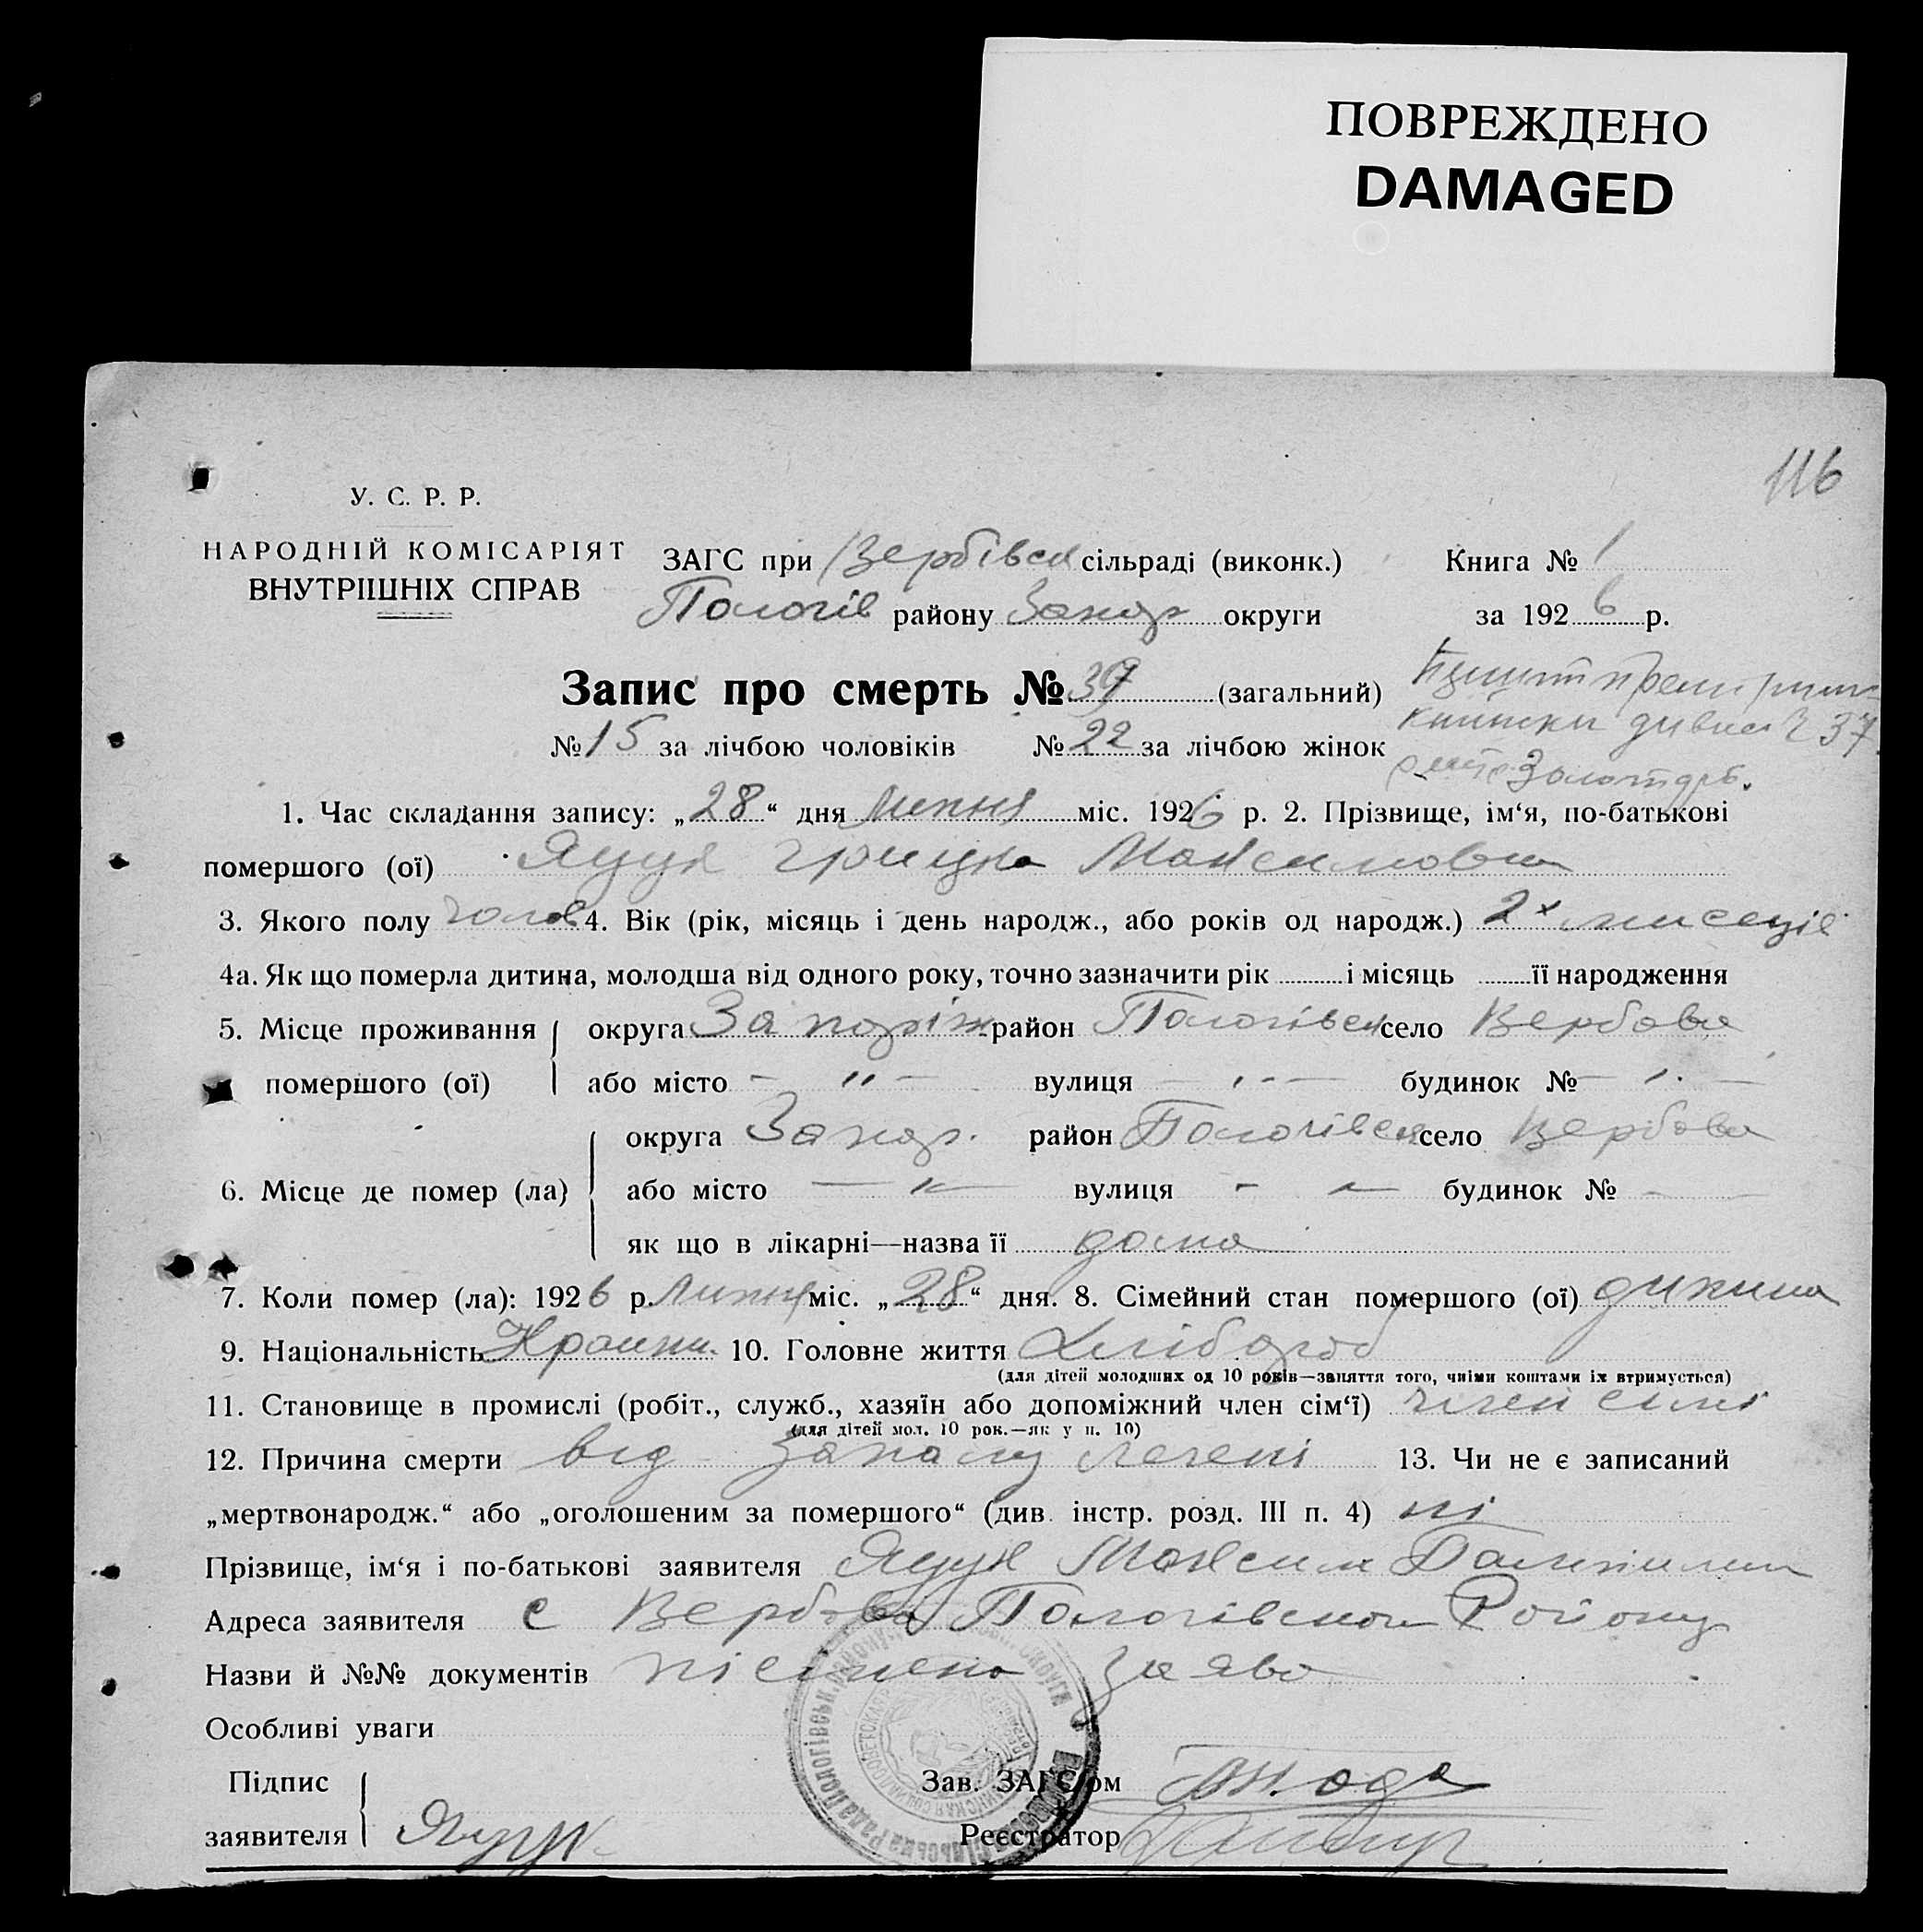 ПОВРЕЖДЕНО
DAMAGED
116
У. С. Р. Р.
НАРОДНІЙ КОМІСАРІЯТ
ВНУТРІШНІХ СПРАВ
ЗАГС при Вербівськ сільраді (виконк.) Книга № 1
Пологів району Запор округи за 1926 р.
Запис про смерть № 37 (загальний)
№ 15 за лічбою чоловіків № 22 за лічбою жінок
книжки 37
1. Час складання запису: „28“ дня липня міс. 1926 р. 2. Прізвище, ім‘я, по-батькові
помершого (ої) Яцун Грицко Максимович
3. Якого полу чолов 4. Вік (рік, місяць і день народж., або років од народж.) 2х мисеців
4а. Як що померла дитина, молодша від одного року, точно зазначити рік і місяць її народження
5. Місце проживання округа Запоріж район Пологівськ село Вербова
помершого (ої) або місто — " — вулиця — " — будинок № — " —
округа Запор. район Пологівськ село Вербова
6. Місце де помер (ла) або місто — " — вулиця - " — будинок № -
як що в лікарні—назва її дома
7. Коли помер (ла): 1926 р. липня міс. „28“ дня. 8. Сімейний стан помершого (ої) дитина
9. Національність Украин. 10. Головне життя Хлібороб
(для дітей молодших од 10 років—заняття того, чиїми коштами їх втримується)
11. Становище в промислі (робіт., служб., хазяїн або допоміжний член сім‘ї) член сімї
(для дітей мол. 10 рок.—як у п. 10)
12. Причина смерти від запалу легені 13. Чи не є записаний
„мертвонародж.“ або „оголошеним за помершого“ (див. інстр. розд. III п. 4) ні
Прізвище, ім‘я і по-батькові заявителя Яцун Максим
Адреса заявителя с Вербова Пологівского Району
Назви й №№ документів пісьмена заява
Особливі уваги
Підпис Зав. ЗАГС‘ом
заявителя Яцун Реєстратор